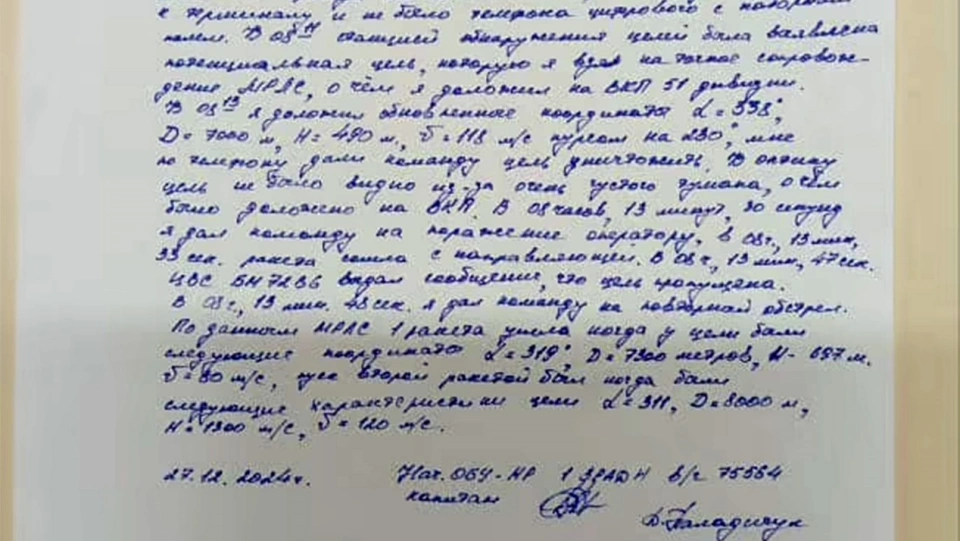 к терминалу и не было телефона цифрового с
полем. В 08¹¹ станцией обнаружения целей была заявлена
потенциальная цель, которую я взял на точное сопровож-
дение МРЛС, о чём я доложил на ВКП 51 дивизии.
В 08¹³ я доложил обновленные координаты α = 338°,
D = 7000 м, H = 490 м, V = 118 м/с курсом на 230°, мне
по телефону дали команду цель уничтожить. В оптику
цель не было видно из-за очень густого тумана, о чём
было доложено на ВКП. В 08 часов, 13 минут, 30 секунд
я дал команду на поражение оператору. в 08 ч, 13 мин,
33 сек. ракета сошла с направляющей. В 08 ч, 13 мин, 47 сек.
ЦВС БМ 72В6 выдал сообщение, что цель пропущена.
В 08 ч, 13 мин. 48 сек. я дал команду на повторный обстрел.
По данным МРЛС 1 ракета ушла когда у цели были
следующие координаты α = 319°, D = 7300 метров, H - 697 м.
V = 80 м/с, пуск второй ракетой был когда были
следующие характеристики цели α = 311, D = 8000 м,
H = 1300 м/с, V = 120 м/с.
27.12.2024г. Нач. ОБУ-НР 1 ЗРАДН в/ч 75564
капитан Д. Паладичук